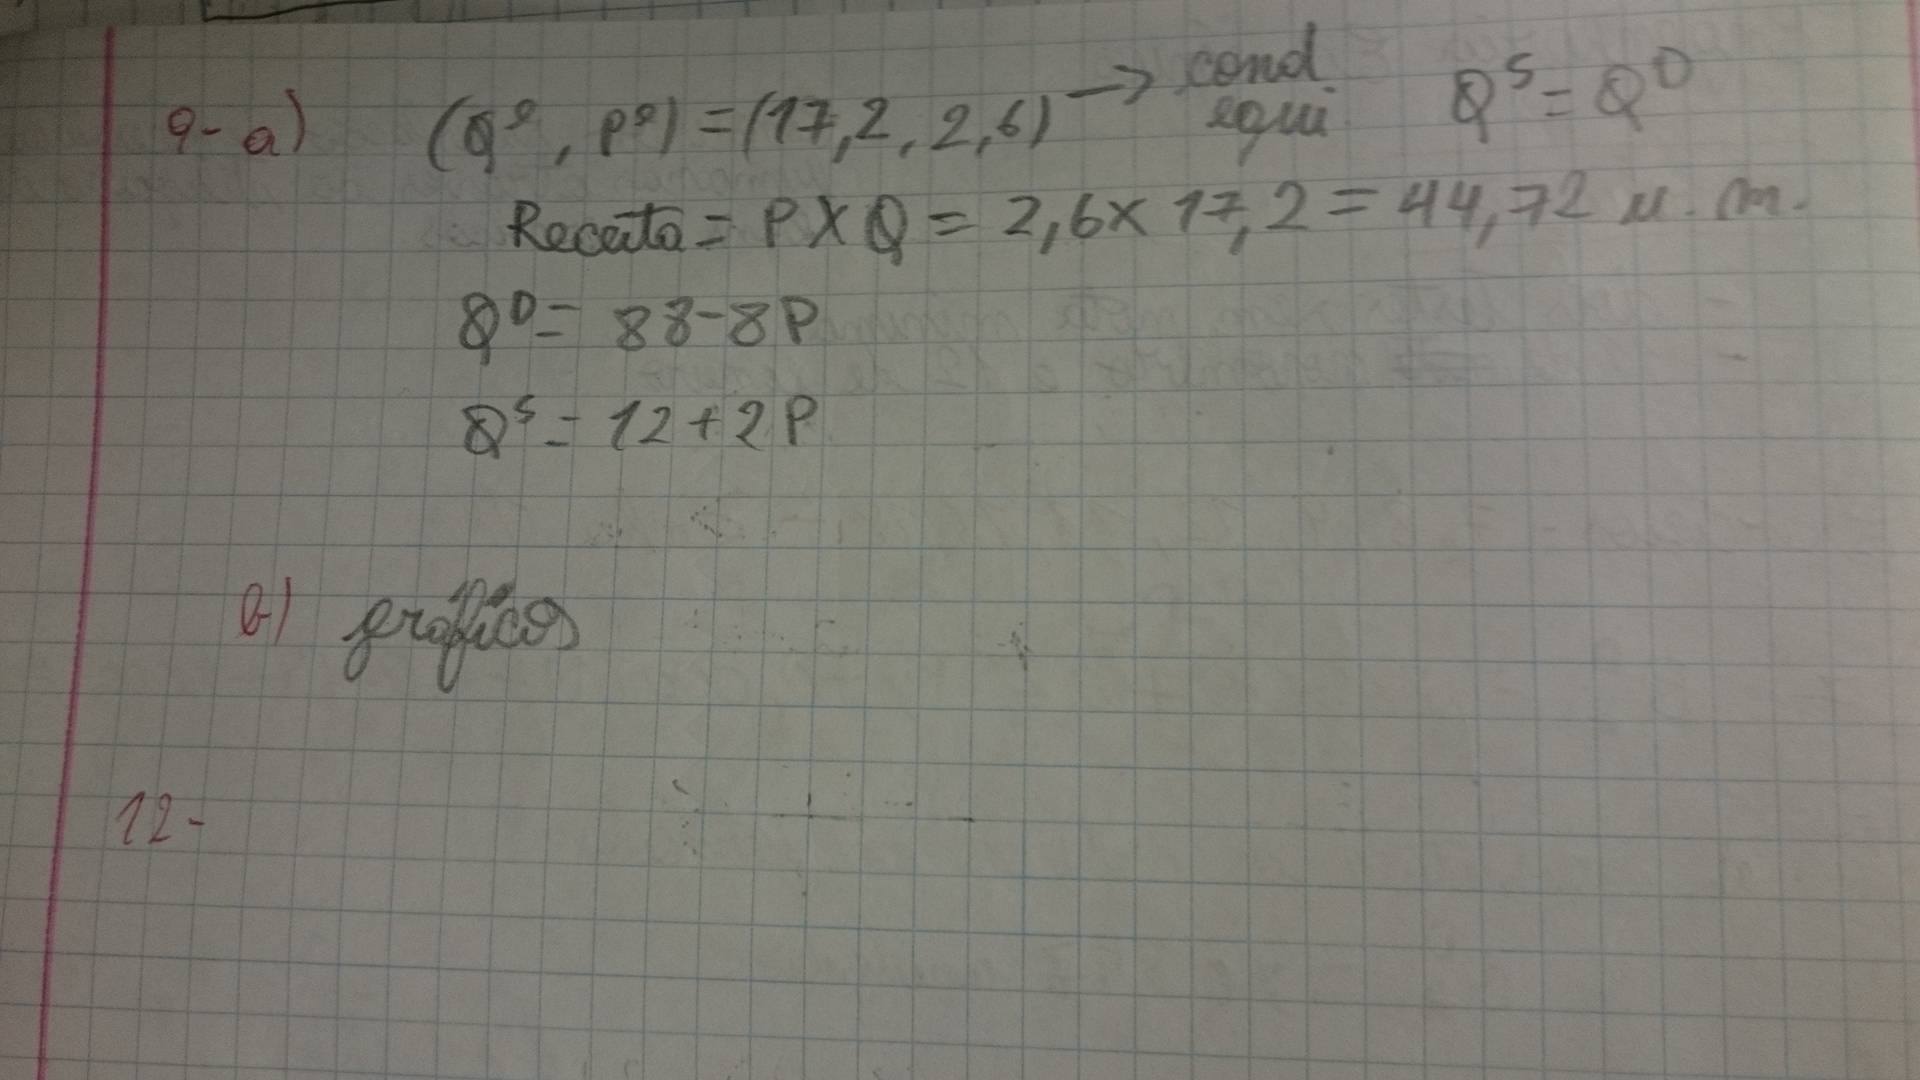 9-a) (Qº, Pº) = (17,2, 2,6) → cond equi Qˢ = Qᴰ
Receita = P X Q = 2,6 x 17,2 = 44,72 u.m.
Qᴰ = 88-8P
Qˢ = 12+2P
b) gráficos
12-